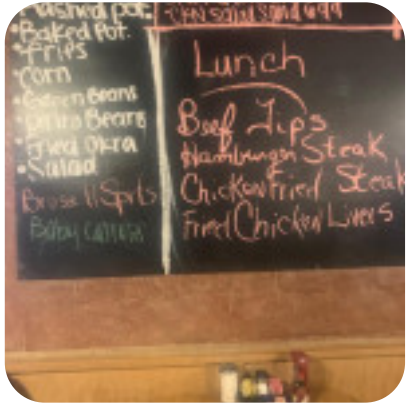 mashed pot.
•Baked Pot.
•Fries
Corn
•Green Beans
•Pinto Beans
•Fried Okra
•Salad
Brussll Sprts
Baby
Lunch
Beef Tips
Hamburger Steak
Chicken Fried Steak
Fried Chicken Livers